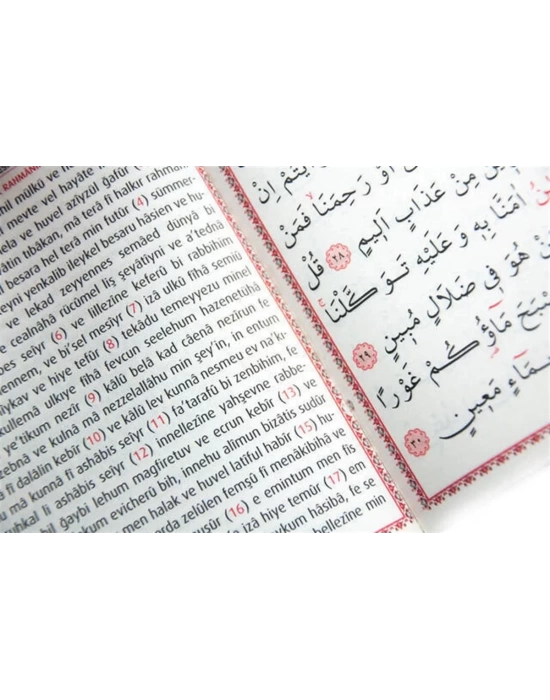 RAHMANİ
mil mülkü ve h
meyte vel hayate
ela ve huvel azîyzül gafûr (2)
tibâkan, mâ terâ fî halkır rahmani
besara hel terâ min futûr (4) sümmer-
eyni yenkalib ileykel besaru hâsien ve hu-
ve lekad zeyyennes semâed dünyâ bi
ve cealnâhâ rücûmel liş şeyâtiyni ve a'tednâ
bes seîyr (6) ve lillezîne keferû bi rabbihim
ennem, ve bi'sel mesîyr (7) izâ ulkû fîhâ semiû
hîykav ve hiye tefûr (8) tekâdu temeyyezu minel
kullemâ ulkıye fîhâ fevcun seelehum hazenetühâ
e'tikum nezîr (9) kâlû belâ kad câenâ nezîrun fe
zebnâ ve kulnâ mâ nezzelallâhu min şey'in, in entum
â fî dalâlin kebîr (10) ve kâlû lev kunnâ nesmeu ev na'k-
mâ kunnâ fî ashâbis seîyr (11) fa'tarafû bi zenbihim, fe
uhkal li ashâbis seîyr (12) innellezîne yahşevne rabbe-
bil ğaybi lehum mağfiretuv ve ecrun kebîr (13) ve
kum evicherû bih, innehu alîmun bizâtis sudûr
men halak ve huvel latîful habîr (15) hu-
arda zelûlen femşû fî menâkibihâ ve
nuşûr (16) e emintum men fis
izâ hiye temûr (17) em
ykum hâsibâ, fe se
bellezîne min
اَوْ رَحِمَنَا فَمَنْ
مِنْ عَذَابٍ اَلِيمٍ ٢٨ قُلْ
اٰمَنَّا بِهٖ وَعَلَيْهِ تَوَكَّلْنَا
هُوَ فِى ضَلَالٍ مُبِينٍ ٢٩
مَاؤُكُمْ غَوْرًا
مَعِينٍ ٣٠